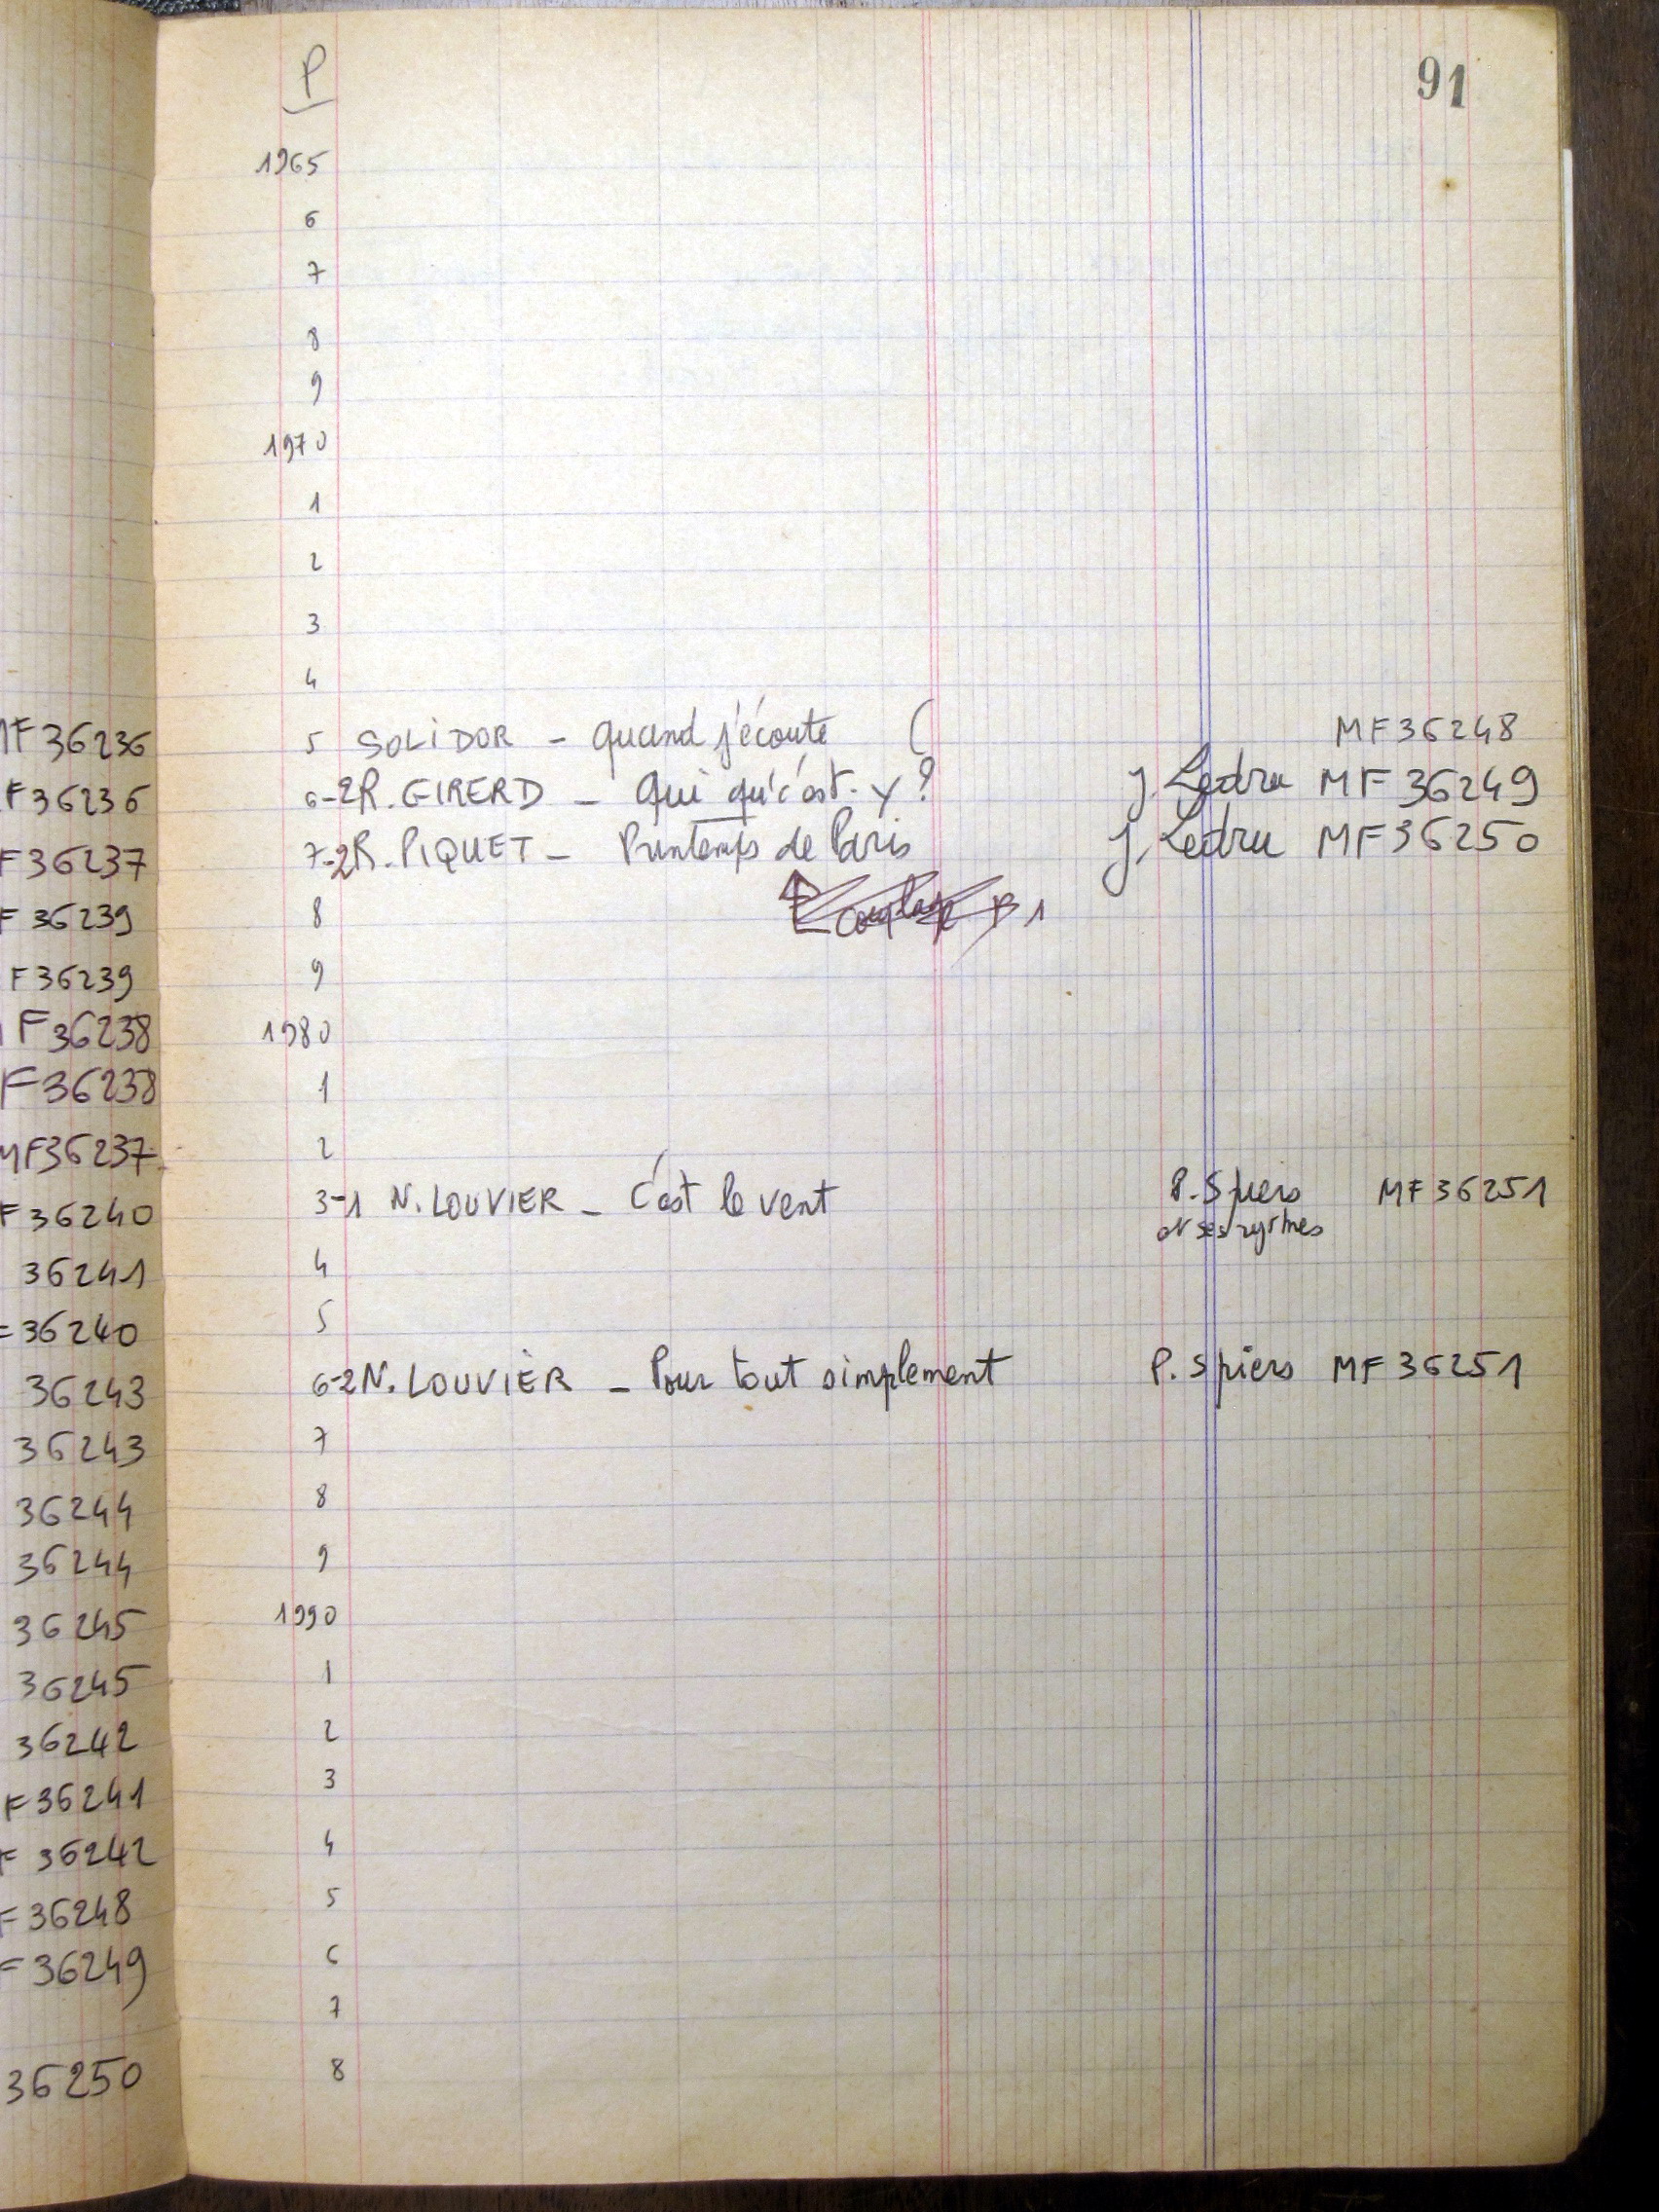 MF 36236
F 36236
F 36237
F 36239
F 36239
F 36238
F 36238
MF36237
F 36240
36241
36240
36243
36243
36244
36244
36245
36245
36242
F 36241
F 36242
F 36248
F 36249
36250
P
91
1965
6
7
8
9
1970
1
2
3
4
5 SOLIDOR - quand j'écoute ( MF36248
6-2 R. GIRERD - Qui qu'c'est-y? J. Ledru MF 36249
7-2 R. PIQUET - Printemps de Paris J. Ledru MF36250
8 couplage P 1
9
1980
1
2
3-1 N. LOUVIER - C'est le vent P. Spiers MF36251
et ses rytmes
4
5
6-2 N. LOUVIER - Pour tout simplement P. Spiers MF 36251
7
8
9
1990
1
2
3
4
5
6
7
8